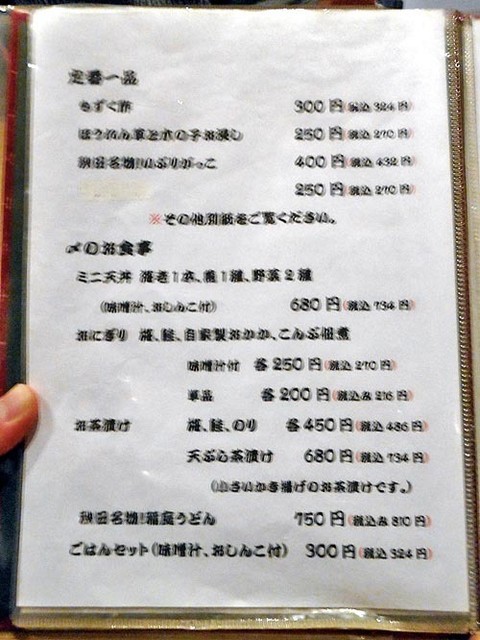 定番一品
もずく酢 300円(税込324円)
ほうれん草ときの子お浸し 250円(税込270円)
秋田名物!いぶりがっこ 400円(税込432円)
250円(税込270円)
※その他別紙をご覧ください。
〆のお食事
ミニ天丼 海老1本、魚1種、野菜2種
(味噌汁、おしんこ付) 680円(税込734円)
おにぎり 梅、鮭、自家製おかか、こんぶ佃煮
味噌汁付 各250円(税込270円)
単品 各200円(税込み216円)
お茶漬け 梅、鮭、のり 各450円(税込486円)
天ぷら茶漬け 680円(税込734円)
(小さいかき揚げのお茶漬けです。)
秋田名物!稲庭うどん 750円(税込み810円)
ごはんセット(味噌汁、おしんこ付) 300円(税込324円)